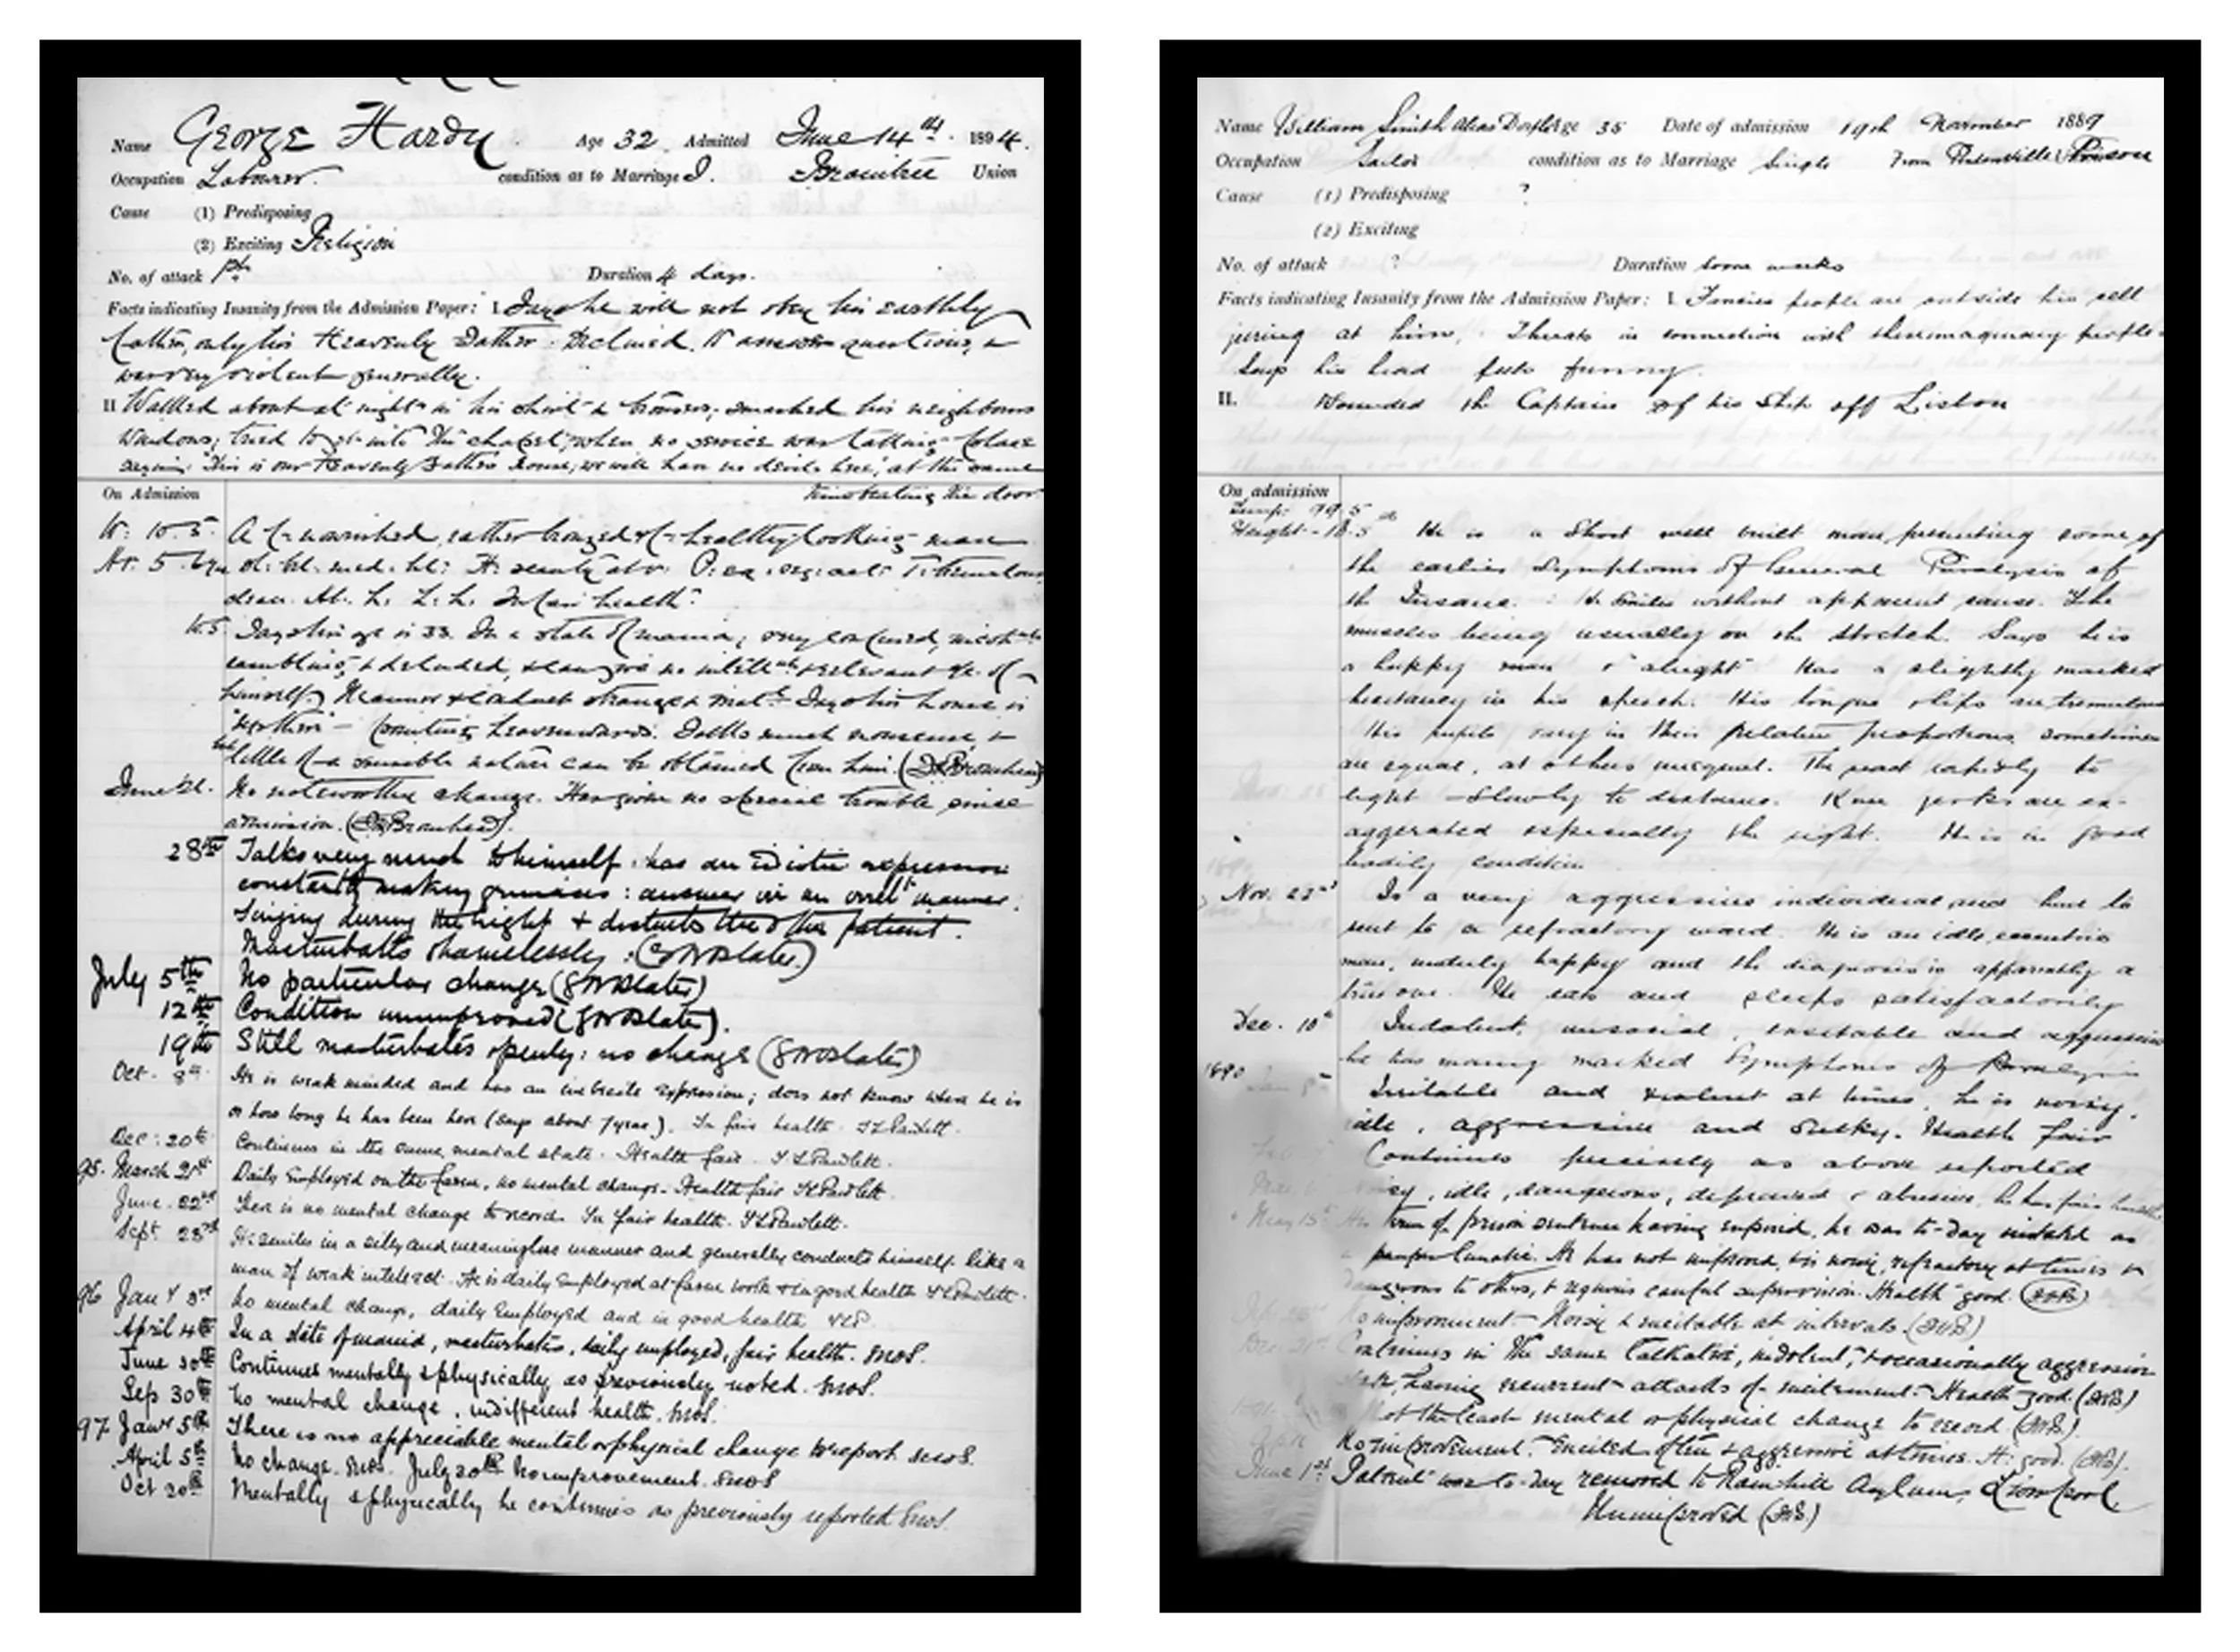 Name George Hardy Age 32 Admitted June 14th. 1894.
Occupation Labourer. condition as to Marriage S. Braintree Union
Cause (1) Predisposing
(2) Exciting Religion
No. of attack 1st. Duration 4 days.
Facts indicating Insanity from the Admission Paper: I. Says he will not obey his earthly
father, only his Heavenly Father. Declined to answer questions, &
was very violent generally.
II Walked about at night in his shirt & trousers, smashed his neighbours
windows; tried to get into the chapel, when no service was taking place
saying "This is our Heavenly Father's house, we will have no devils here", at the same
time beating the door
On Admission
A nourished, rather bronzed & healthy looking man
Ht. 5
clean. Ht. L. L. L. In fair health.
Says his age is 33. In a state of mania; very confused,
rambling, & deluded, & can give no & relevant of
himself. Manner & conduct strange & Says his home is
"up there" - pointing heavenwards. Talks much nonsense, &
but little of a sensible nature can be obtained from him.
June 21. No noteworthy change. Has given no special trouble since
admission.
28th Talks very much to himself. has an idiotic expression
constantly making grimaces: answers in an manner.
Singing during the night & disturbs the other patient.
Masturbates shamelessly. (Slater)
July 5th No particular change (Slater)
12th Condition unimproved (Slater).
19th Still masturbates openly: no change (Slater)
Oct. 8th He is weak minded and has an expression; does not know where he is
or how long he has been here (says about 7 years). In fair health.
Dec: 20th Continues in the same mental state. Health fair.
95. March 21st Daily Employed on the farm, no mental change. Health fair
June. 22nd There is no mental change to record. In fair health.
Sept 28th He smiles in a silly and meaningless manner and generally conducts himself like a
man of weak intellect. He is daily Employed at farm work & in good health
96 Jany 3rd No mental change, daily Employed and in good health
April 4th In a state of mania, masturbates, daily employed, fair health.
June 30th Continues mentally & physically as previously noted.
Sep 30th No mental change, indifferent health.
97 Jany 5th There is no appreciable mental or physical change to report
April 5th No change. July 20th No improvement.
Oct 20th Mentally & physically he continues as previously reported
Name William Smith alias Age 35 Date of admission 19th November 1889
Occupation Sailor condition as to Marriage Single From Pentonville Prison
Cause (1) Predisposing ?
(2) Exciting
No. of attack ? Duration some weeks
Facts indicating Insanity from the Admission Paper: I. Fancies people are outside his cell
jeering at him. Threats in connection with these imaginary people
Says his head feels funny.
II. Wounded the Captain of his Ship off Lisbon
On admission
Temp: 99.5
He is a short well built man, presenting some of
the earlier Symptoms of General Paralysis of
the Insane. He smiles without apparent cause. The
muscles being usually on the stretch. Says he is
a happy man & "alright" Has a slightly marked
hesitancy in his speech. His tongue & lips are tremulous
His pupils vary in their relative proportions sometimes
are equal, at others unequal. They react rapidly to
light slowly to distance. Knee jerks are ex-
aggerated especially the right. He is in good
bodily condition.
Nov. 23rd Is a very aggressive individual and had to
sent to a refractory ward. He is an idle, eccentric
man, unduly happy and the diagnosis is apparently a
true one. He eats and sleeps satisfactorily
Dec. 10th Indolent, unsocial, irritable and aggressive
he has many marked Symptoms of Paralysis
1890 Irritable and violent at times, he is noisy,
idle, aggressive and sulky. Health fair
Continues precisely as above reported
Noisy, idle, dangerous, depraved & abusive, he has fair health
May 15th His term of prison sentence having expired, he was to-day as
pauper lunatic. He has not improved, is noisy, refractory at times &
dangerous to others, & requires careful supervision. Health good.
No improvement. Noisy & excitable at intervals.
Dec 21st Continues in the same talkative, indolent, & occasionally aggressive
state, having recurrent attacks of excitement. Health good.
Not the least mental or physical change to record
No improvement. Excited often & aggressive at times. H: good.
June 1st Patient was to-day removed to Rainhill Asylum, Liverpool
Unimproved